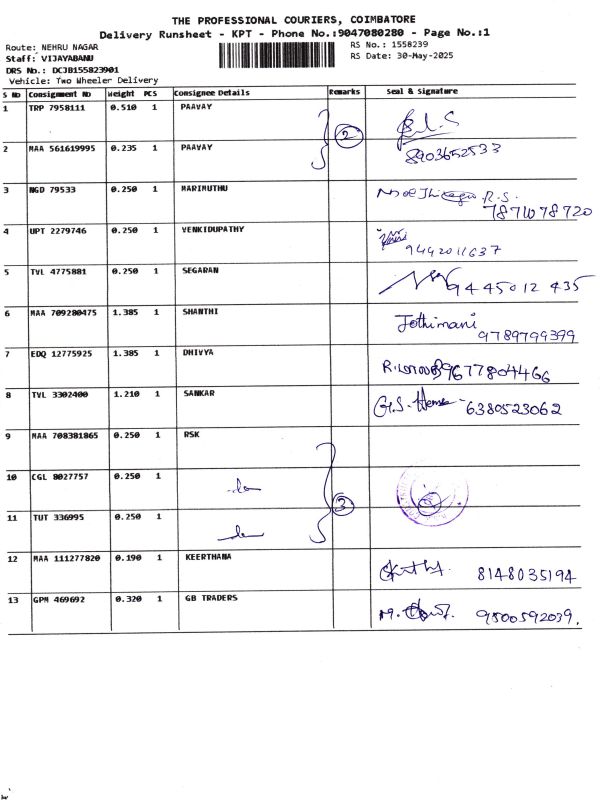 THE PROFESSIONAL COURIERS, COIMBATORE
Delivery Runsheet - KPT - Phone No.:9047080280 - Page No.:1
Route: NEHRU NAGAR RS No.: 1558239
Staff: VIJAYABANU RS Date: 30-May-2025
DRS No.: DCJB155823901
Vehicle: Two Wheeler Delivery
S No Consignment No Weight PCS Consignee Details Remarks Seal & Signature
1 TRP 7958111 0.510 1 PAAVAY
2
2 MAA 561619995 0.235 1 PAAVAY 8903652533
3 NGD 79533 0.250 1 MARIMUTHU R.S.
7871078720
4 UPT 2279746 0.250 1 VENKIDUPATHY
9442011637
5 TVL 4775881 0.250 1 SEGARAN 9445012 435
6 MAA 709280475 1.385 1 SHANTHI Jothimani
9789799399
7 EDQ 12775925 1.385 1 DHIVYA 9677804466
8 TVL 3302400 1.210 1 SANKAR G.S. Hema 6380523062
9 MAA 708381865 0.250 1 RSK
10 CGL 8027757 0.250 1 do
3
11 TUT 336995 0.250 1 do
12 MAA 111277820 0.190 1 KEERTHANA 8148035194
13 GPM 469692 0.320 1 GB TRADERS 9500592039.